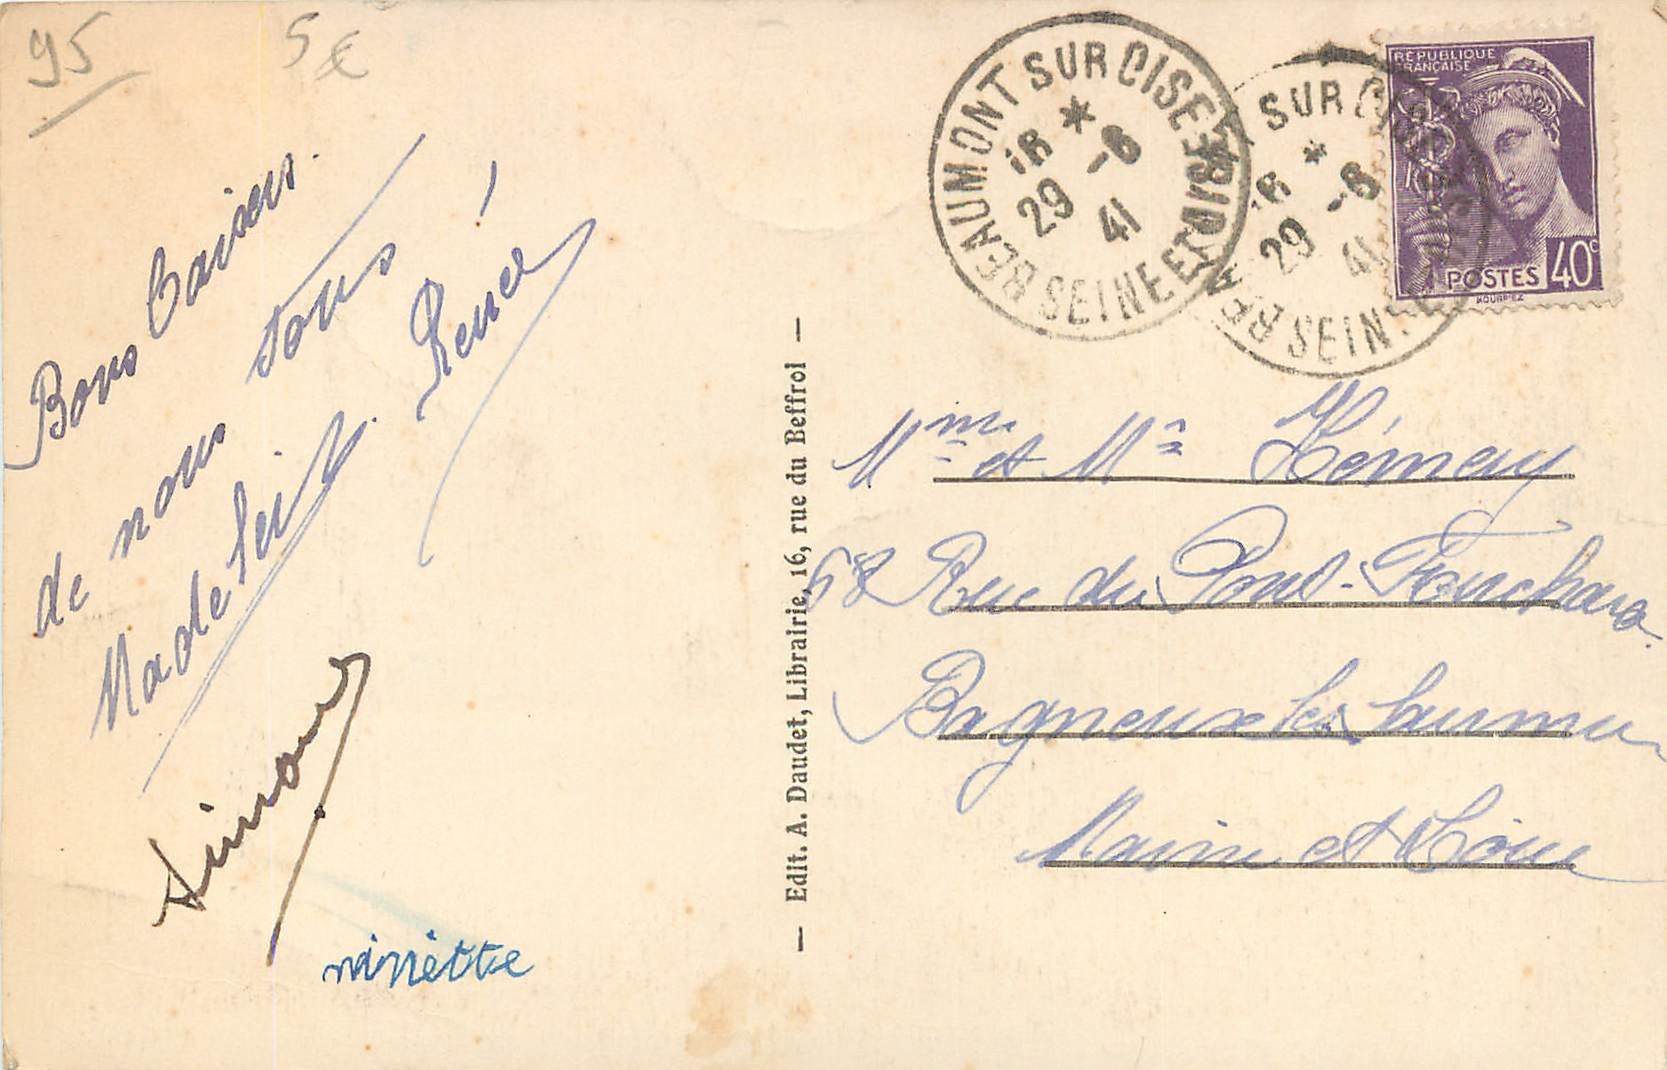 95
5€
Bons Baisers.
de nous tous
Madeleine. Renée
Simone
ninette
— Edit. A. Daudet, Librairie, 16, rue du Beffroi —
BEAUMONT SUR OISE
18 * 29 -8 41
SEINE ET OISE
SUR OISE
18 * 29 -8 41
SEINE
RÉPUBLIQUE
FRANÇAISE
POSTES 40c
HOURRIEZ
Mme et Mr Hémery
68 Rue du Pont-Fouchard
Bagneux les Saumur
Maine et Loire